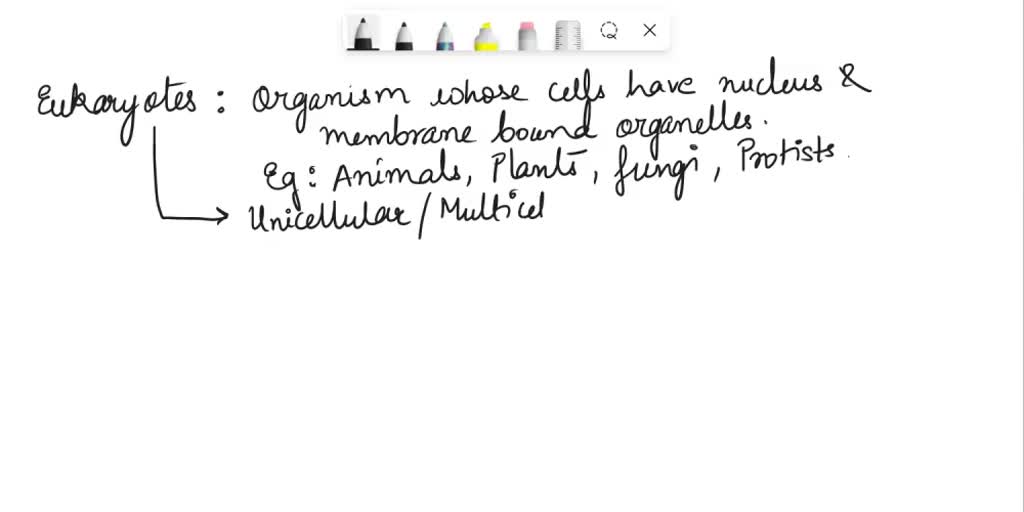 Eukaryotes : Organism whose cells have nucleus &
membrane bound organelles.
Eg : Animals, Plants, fungi, Protists.
Unicellular / Multicel